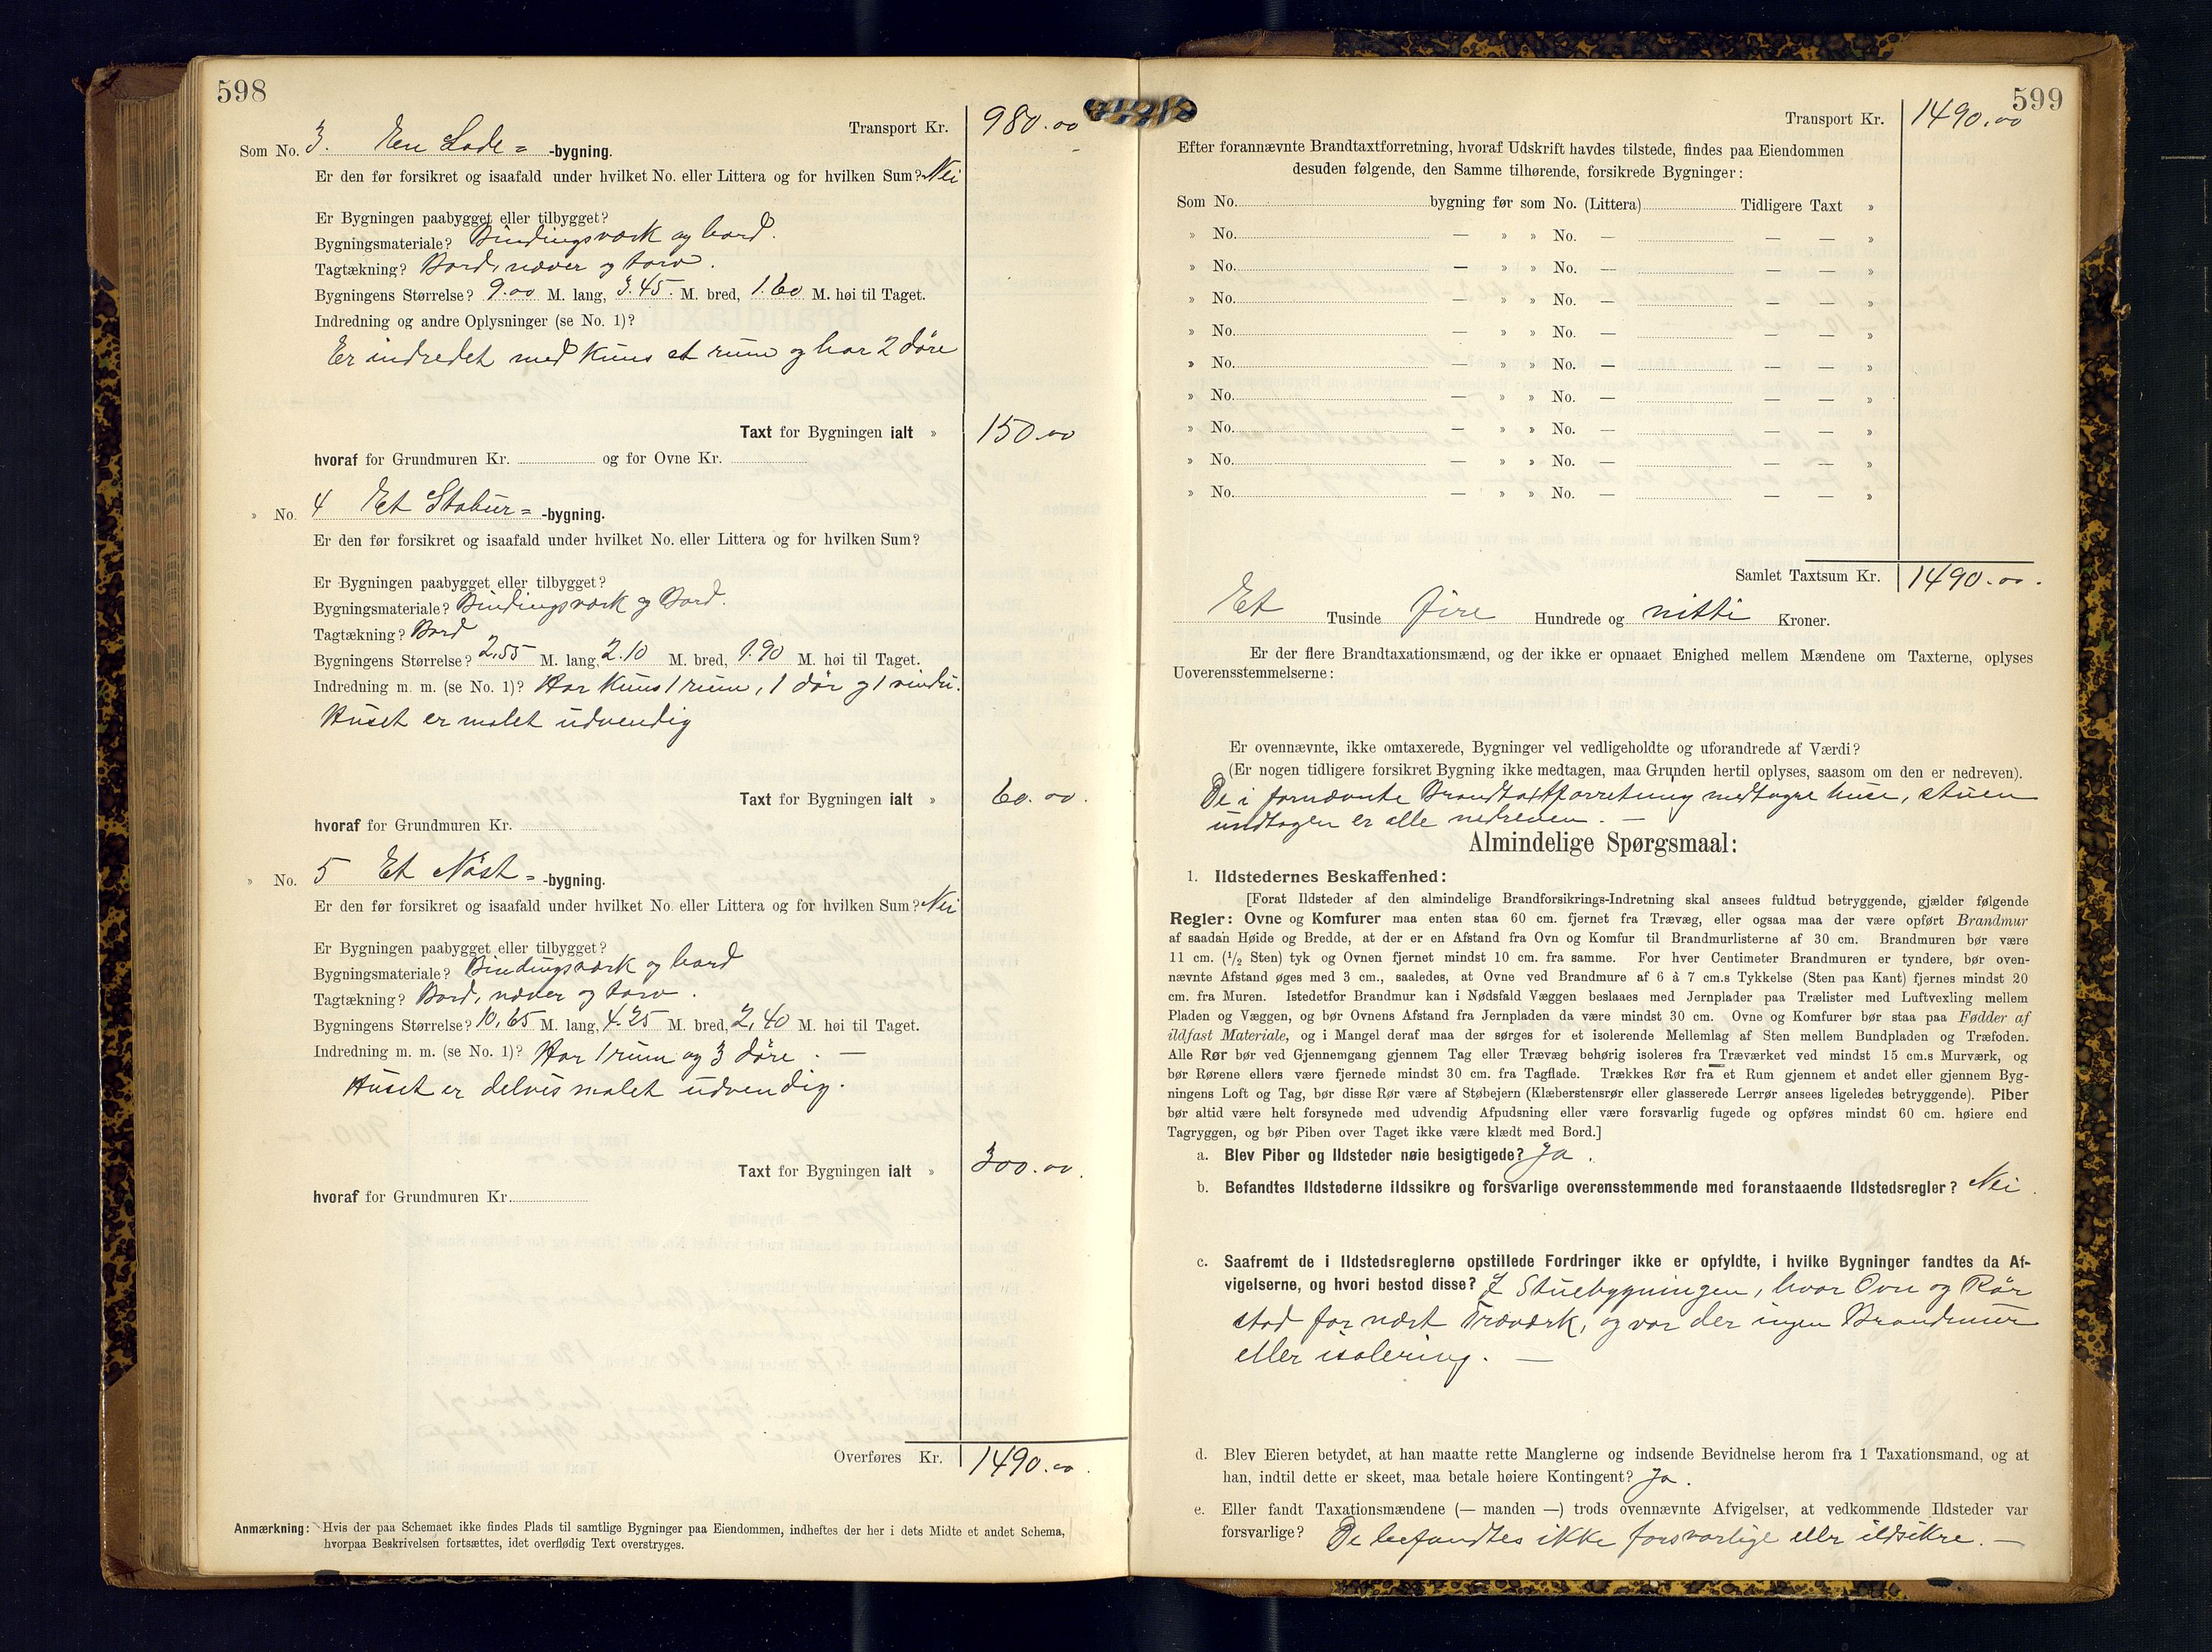 598
Transport Kr. 980.00
Som No. 3. En Lade= -bygning.
Er den før forsikret og isaafald under hvilket No. eller Littera og for hvilken Sum? Nei
Er Bygningen paabygget eller tilbygget?
Bygningsmateriale? Bindingsværk og bord.
Tagtækning? Bord, næver og torv.
Bygningens Størrelse? 9.00 M. lang, 3.45. M. bred, 1.60 M. høi til Taget.
Indredning og andre Oplysninger (se No. 1)?
Er indredet med kuns et rum og har 2 döre
Taxt for Bygningen ialt » 150.00
hvoraf for Grundmuren Kr. og for Ovne Kr.
» No. 4 Et Stabur= -bygning.
Er den før forsikret og isaafald under hvilket No. eller Littera og for hvilken Sum?
Er Bygningen paabygget eller tilbygget?
Bygningsmateriale? Bindingsværk og Bord.
Tagtækning? Bord
Bygningens Størrelse? 2.55 M. lang, 2.10 M. bred, 1.90 M. høi til Taget.
Indredning m. m. (se No. 1)? Har kuns 1 rum, 1 dör og 1 vindu.
Huset er malet udvendig
Taxt for Bygningen ialt » 60.00.
hvoraf for Grundmuren Kr.
» No. 5 Et Nöst= -bygning.
Er den før forsikret og isaafald under hvilket No. eller Littera og for hvilken Sum? Nei
Er Bygningen paabygget eller tilbygget?
Bygningsmateriale? Bindingsværk og bord
Tagtækning? Bord, næver og torv.
Bygningens Størrelse? 10,65 M. lang, 4.25 M. bred, 2,40 M. høi til Taget.
Indredning m. m. (se No. 1)? Har 1 rum og 3 döre. —
Huset er delvis malet udvendig.
Taxt for Bygningen ialt » 300.00.
hvoraf for Grundmuren Kr.
Overføres Kr. 1490.00.
Anmærkning: Hvis der paa Schemaet ikke findes Plads til samtlige Bygninger paa Eiendommen, indheftes der her i dets Midte et andet Schema,
hvorpaa Beskrivelsen fortsættes, idet overflødig Text overstryges.
599
Transport Kr. 1490.00
Efter forannævnte Brandtaxtforretning, hvoraf Udskrift havdes tilstede, findes paa Eiendommen
desuden følgende, den Samme tilhørende, forsikrede Bygninger:
Som No. bygning før som No. (Littera) Tidligere Taxt »
» No. — » » No. — — — »
» No. — » » No. — — — »
» No. — » » No. — — — »
» No. — » » No. — — — »
» No. — » » No. — — — »
» No. — » » No. — — — »
» No. — » » No. — — — »
» No. — » » No. — — — »
» No. — » » No. — — — »
Samlet Taxtsum Kr. 1490.00.
Et Tusinde fire Hundrede og nitti Kroner.
Er der flere Brandtaxationsmænd, og der ikke er opnaaet Enighed mellem Mændene om Taxterne, oplyses
Uoverensstemmelserne:
Er ovennævnte, ikke omtaxerede, Bygninger vel vedligeholdte og uforandrede af Værdi?
(Er nogen tidligere forsikret Bygning ikke medtagen, maa Grunden hertil oplyses, saasom om den er nedreven).
De i fornævnte Brandtaxtforretning medtagne huse, stuen
undtagen er alle nedreven. —
Almindelige Spørgsmaal:
1. Ildstedernes Beskaffenhed:
[Forat Ildsteder af den almindelige Brandforsikrings-Indretning skal ansees fuldtud betryggende, gjælder følgende
Regler: Ovne og Komfurer maa enten staa 60 cm. fjernet fra Trævæg, eller ogsaa maa der være opført Brandmur
af saadan Høide og Bredde, at der er en Afstand fra Ovn og Komfur til Brandmurlisterne af 30 cm. Brandmuren bør være
11 cm. (1/2 Sten) tyk og Ovnen fjernet mindst 10 cm. fra samme. For hver Centimeter Brandmuren er tyndere, bør oven-
nævnte Afstand øges med 3 cm., saaledes, at Ovne ved Brandmure af 6 à 7 cm.s Tykkelse (Sten paa Kant) fjernes mindst 20
cm. fra Muren. Istedetfor Brandmur kan i Nødsfald Væggen beslaaes med Jernplader paa Trælister med Luftvexling mellem
Pladen og Væggen, og bør Ovnens Afstand fra Jernpladen da være mindst 30 cm. Ovne og Komfurer bør staa paa Fødder af
ildfast Materiale, og i Mangel deraf maa der sørges for et isolerende Mellemlag af Sten mellem Bundpladen og Træfoden.
Alle Rør bør ved Gjennemgang gjennem Tag eller Trævæg behørig isoleres fra Træværket ved mindst 15 cm.s Murværk, og
bør Rørene ellers være fjernede mindst 30 cm. fra Tagflade. Trækkes Rør fra et Rum gjennem et andet eller gjennem Byg-
ningens Loft og Tag, bør disse Rør være af Støbejern (Klæberstensrør eller glasserede Lerrør ansees ligeledes betryggende). Piber
bør altid være helt forsynede med udvendig Afpudsning eller være forsvarlig fugede og opføres mindst 60 cm. høiere end
Tagryggen, og bør Piben over Taget ikke være klædt med Bord.]
a. Blev Piber og Ildsteder nøie besigtigede? Ja.
b. Befandtes Ildstederne ildssikre og forsvarlige overensstemmende med foranstaaende Ildstedsregler? Nei.
c. Saafremt de i Ildstedsreglerne opstillede Fordringer ikke er opfyldte, i hvilke Bygninger fandtes da Af-
vigelserne, og hvori bestod disse? I Stuebygningen, hvor Ovn og Rör
stod for nært Træværk, og var der ingen Brandmur
eller isolering. —
d. Blev Eieren betydet, at han maatte rette Manglerne og indsende Bevidnelse herom fra 1 Taxationsmand, og at
han, indtil dette er skeet, maa betale høiere Kontingent? Ja.
e. Eller fandt Taxationsmændene (— manden —) trods ovennævnte Afvigelser, at vedkommende Ildsteder var
forsvarlige? De befandtes ikke forsvarlige eller ildsikre. —